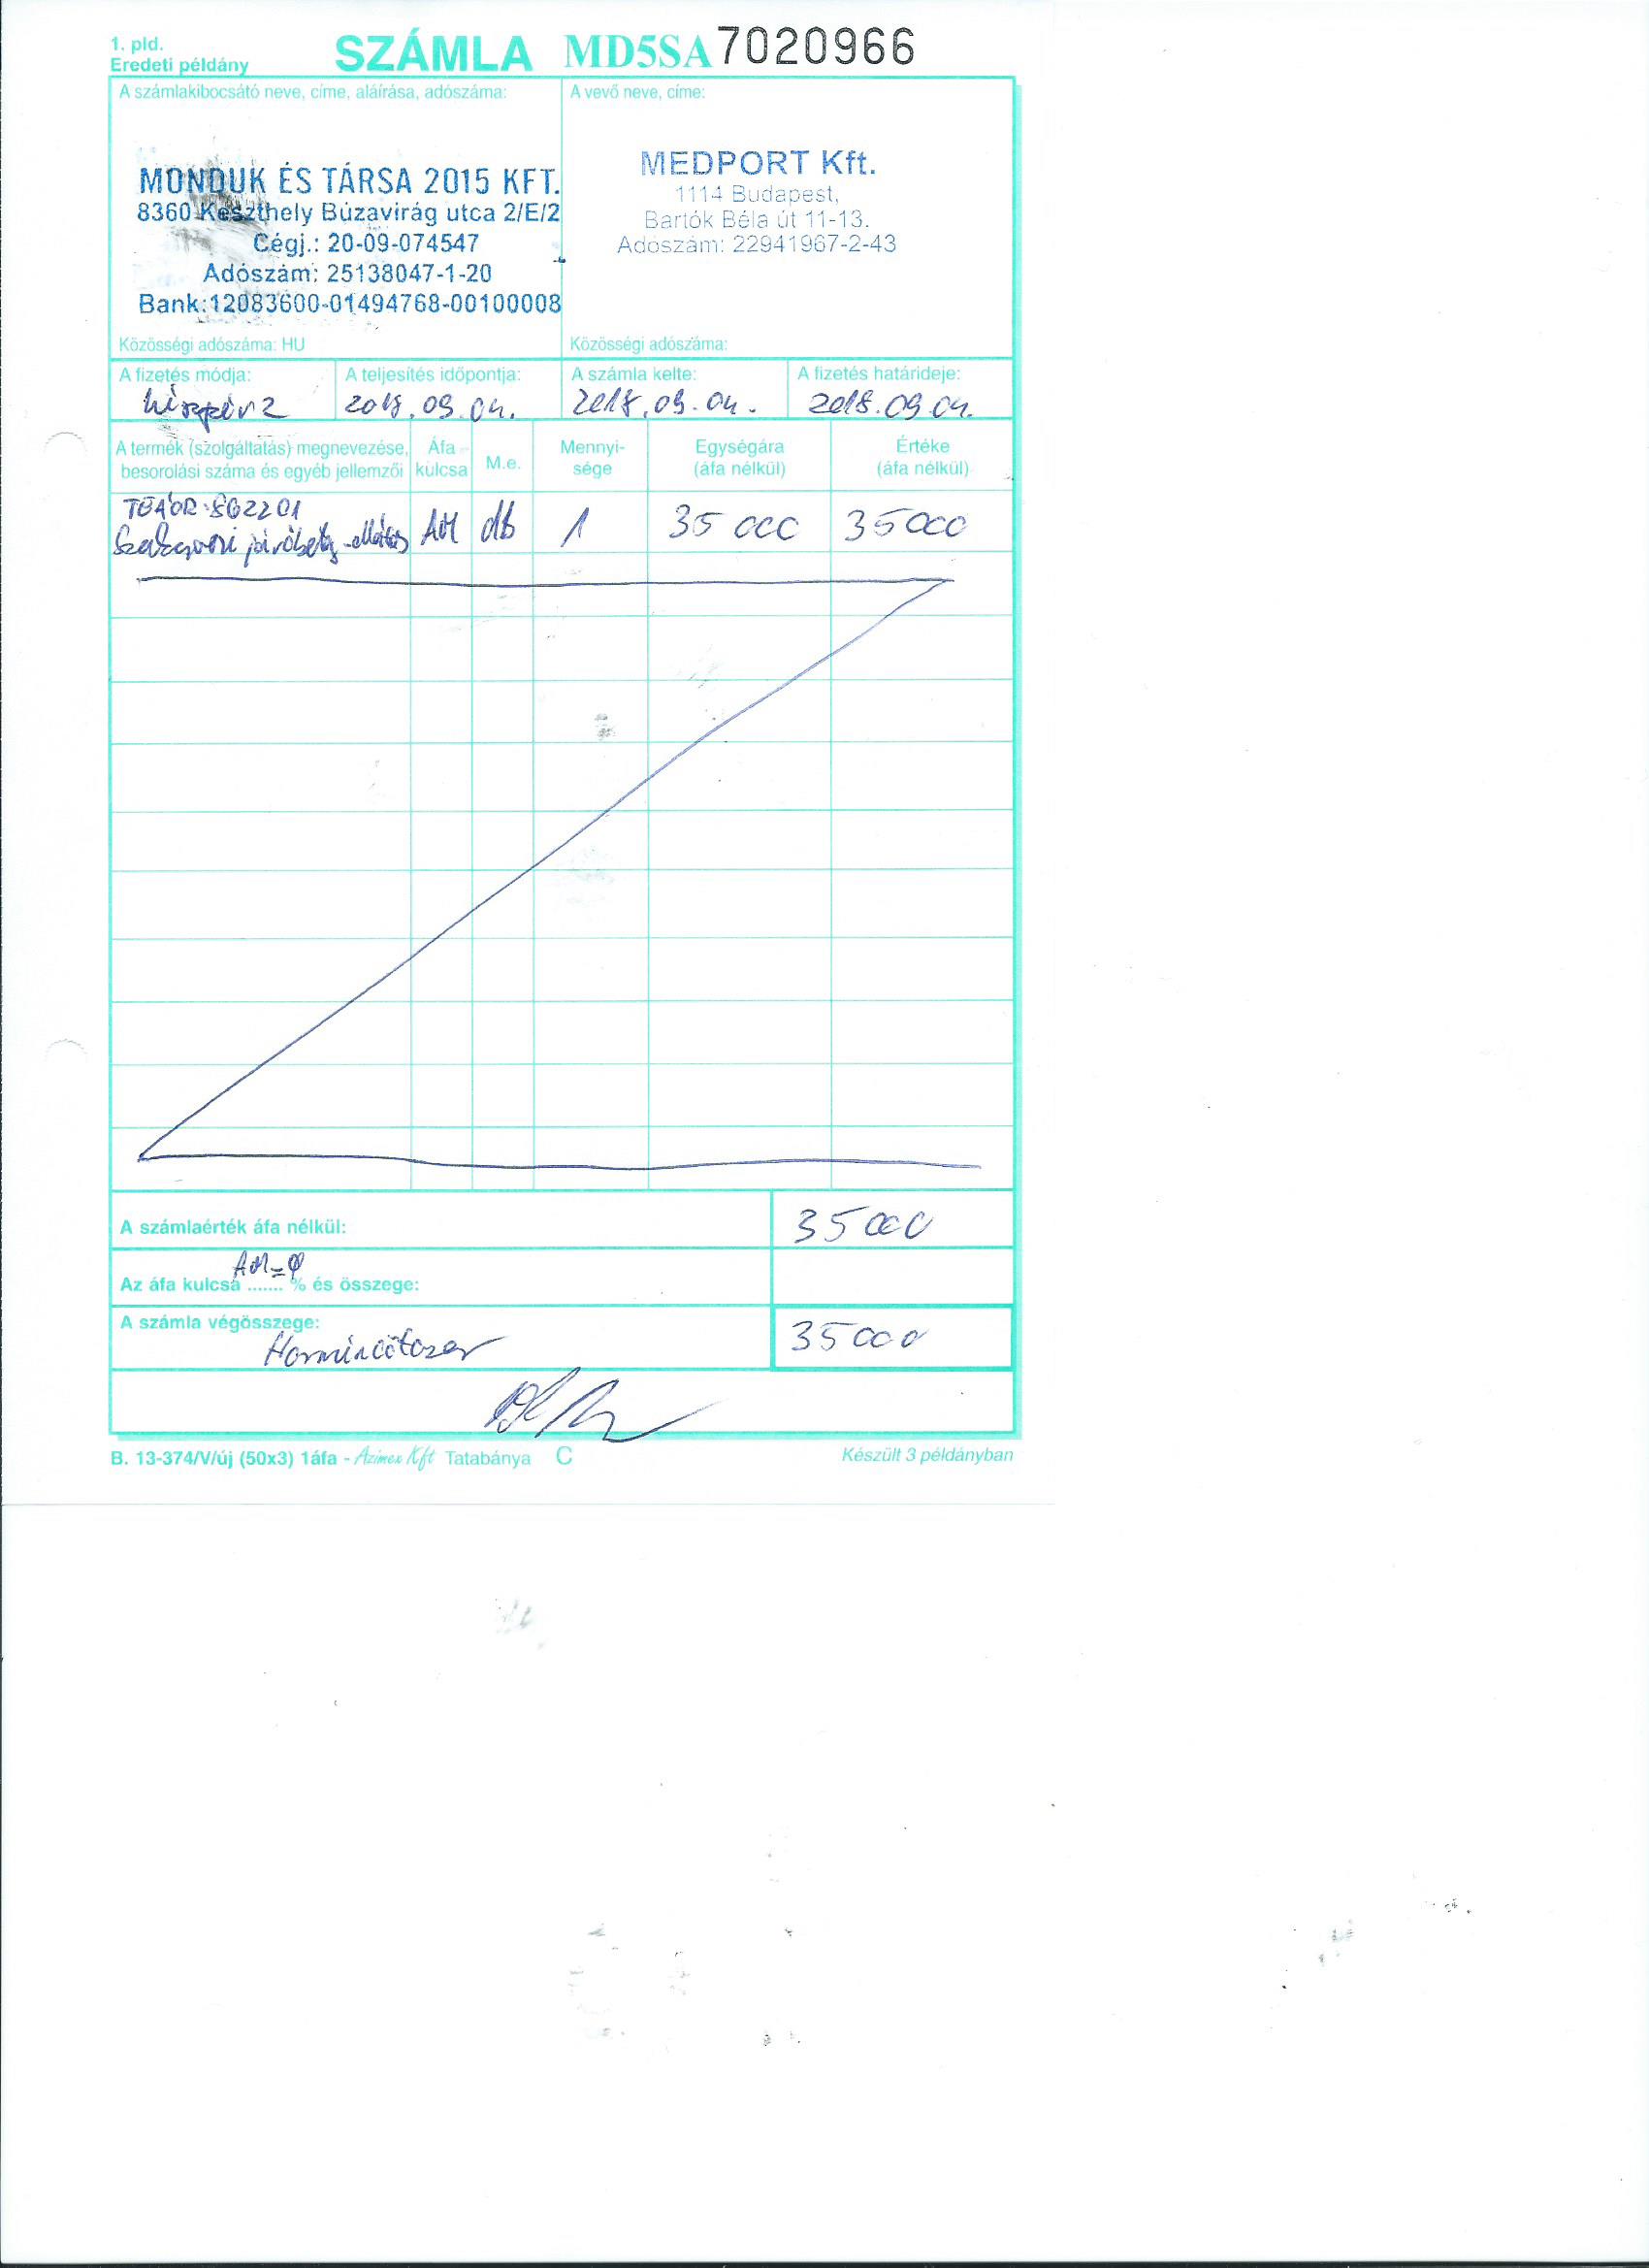 1. pld.
Eredeti példány
SZÁMLA MD5SA 7020966
A számlakibocsátó neve, címe, aláírása, adószáma:
MONDUK ÉS TÁRSA 2015 KFT.
8360 Keszthely Búzavirág utca 2/E/2
Cégj.: 20-09-074547
Adószám: 25138047-1-20
Bank:12083600-01494768-00100008
Közösségi adószáma: HU
A vevő neve, címe:
MEDPORT Kft.
1114 Budapest,
Bartók Béla út 11-13.
Adószám: 22941967-2-43
Közösségi adószáma:
A fizetés módja: A teljesítés időpontja: A számla kelte: A fizetés határideje:
készpénz 2018.09.04. 2018.09.04. 2018.09.04.
A termék (szolgáltatás) megnevezése, besorolási száma és egyéb jellemzői Áfa kulcsa M.e. Mennyi-sége Egységára (áfa nélkül) Értéke (áfa nélkül)
TEÁOR: 862201
Szakorvosi járóbeteg-ellátás AM db 1 35 000 35 000
A számlaérték áfa nélkül: 35 000
AM=0
Az áfa kulcsa ....... % és összege:
A számla végösszege: 35 000
Harmincötezer
B. 13-374/V/új (50x3) 1áfa - Azimex Kft Tatabánya C
Készült 3 példányban